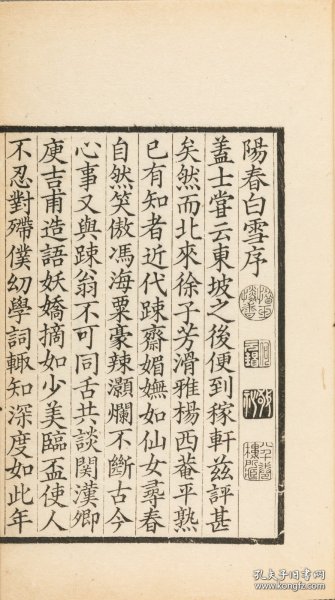 陽春白雪序
盖士甞云東坡之後便到稼軒兹評甚
矣然而北來徐子芳滑雅楊西菴平熟
已有知者近代踈齋媚嫵如仙女尋春
自然笑傲馮海粟豪辣灝爛不斷古今
心事又與踈翁不可同舌共談関漢卿
庾吉甫造語妖嬌摘如少美臨盃使人
不忍對殢僕幼學詞輙知深度如此年
孔夫子旧书网